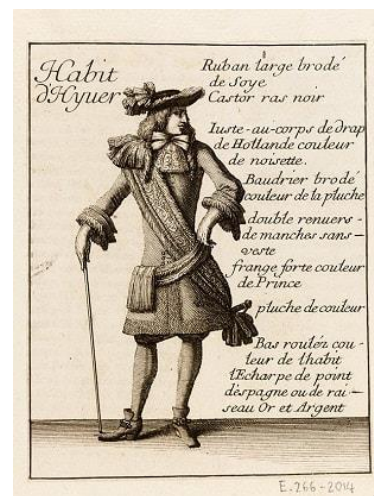 Habit
d'Hyuer
Ruban large brodé
de Soye
Castor ras noir
Iuste-au-corps de drap
de Hollande couleur
de noisette.
Baudrier brodé
couleur de la pluche
double renuers-
de manches sans-
veste
frange forte couleur
de Prince
pluche de couleur
Bas rouléz cou-
leur de lhabit
lEcharpe de point
despagne ou de rai-
seau Or et Argent
E.266-2014